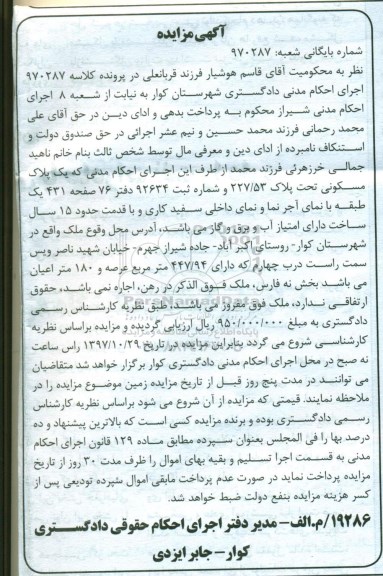 آگهی مزایده
شماره بایگانی شعبه: ۹۷۰۲۸۷
نظر به محکومیت آقای قاسم هوشیار فرزند قربانعلی در پرونده کلاسه ۹۷۰۲۸۷
اجرای احکام مدنی دادگستری شهرستان کوار به نیابت از شعبه ۸ اجرای
احکام مدنی شیراز محکوم به پرداخت بدهی و ادای دین در حق آقای علی
محمد رحمانی فرزند محمد حسین و نیم عشر اجرائی در حق صندوق دولت و
استنکاف نامبرده از ادای دین و معرفی مال توسط شخص ثالث بنام خانم ناهید
جمالی خرزهرئی فرزند محمد از طرف این اجرای احکام مدنی که یک پلاک
مسکونی تحت پلاک ۲۲۷/۵۳ و شماره ثبت ۹۲۶۳۴ دفتر ۷۶ صفحه ۴۳۱ یک
طبقه با نمای آجر نما و نمای داخلی سفید کاری و با قدمت حدود ۱۵ سال
ساخت دارای امتیاز آب و برق و گاز می باشد، آدرس محل وقوع ملک واقع در
شهرستان کوار- روستای اکبر آباد- جاده شیراز جهرم- خیابان شهید ناصر ویس
سمت راست درب چهارم که دارای ۴۴۷/۹۴ متر مربع عرصه و ۱۸۰ متر اعیان
می باشد بخش نه فارس، ملک فوق الذکر در رهن، اجاره نمی باشد، حقوق
ارتفاقی ندارد، ملک فوق مفروز می باشد، طبق نظریه کارشناس رسمی
دادگستری به مبلغ ۹۵۰/۰۰۰/۰۰۰ ریال ارزیابی گردیده و مزایده براساس نظریه
کارشناسی شروع می گردد بنابراین مزایده در تاریخ ۱۳۹۷/۱۰/۲۹ راس ساعت
نه صبح در محل اجرای احکام مدنی دادگستری کوار برگزار خواهد شد متقاضیان
می توانند در مدت پنج روز قبل از تاریخ مزایده زمین موضوع مزایده را
ملاحظه نمایند. قیمتی که مزایده از آن شروع می شود براساس نظریه کارشناس
رسمی دادگستری بوده و برنده مزایده کسی است که بالاترین پیشنهاد و ده
درصد بها را فی المجلس بعنوان سپرده مطابق ماده ۱۲۹ قانون اجرای احکام
مدنی به قسمت اجرا تسلیم و بقیه بهای اموال را ظرف مدت ۳۰ روز از تاریخ
مزایده پرداخت نماید در صورت عدم پرداخت مابقی اموال سپرده تودیعی پس از
کسر هزینه مزایده بنفع دولت ضبط خواهد شد.
۱۹۲۸۶/م.الف- مدیر دفتر اجرای احکام حقوقی دادگستری
کوار- جابر ایزدی